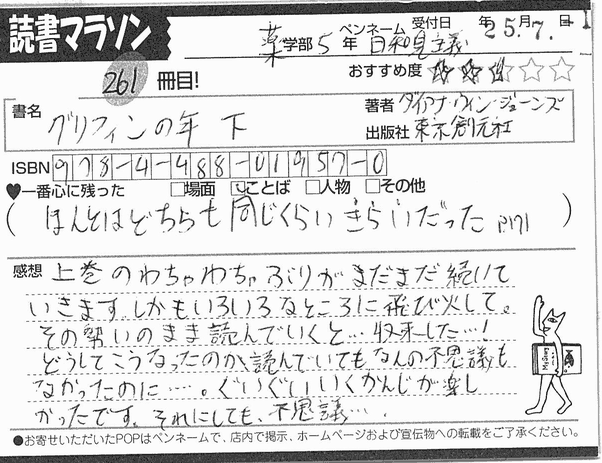 読書マラソン
薬学部5年 ペンネーム 日和見主義 受付日 年 25.7.
261冊目! おすすめ度 ★★★☆☆
書名 グリフィンの年 下
著者 ダイアナ・ウィン・ジョーンズ
出版社 東京創元社
ISBN 978-4-488-01957-0
♥一番心に残った □場面 ☑ことば □人物 □その他
(ほんとはどちらも同じくらいきらいだった P171)
感想 上巻のわちゃわちゃぶりがまだまだ続いて
いきます。しかもいろいろなところに飛び火して。
その勢いのまま読んでいくと…収束した…!
どうしてこうなったのか、読んでいてもなんの不思議も
なかったのに…。ぐいぐいいくかんじが楽し
かったです。それにしても、不思議…。
●お寄せいただいたPOPはペンネームで、店内で掲示、ホームページおよび宣伝物への転載をご了承ください。